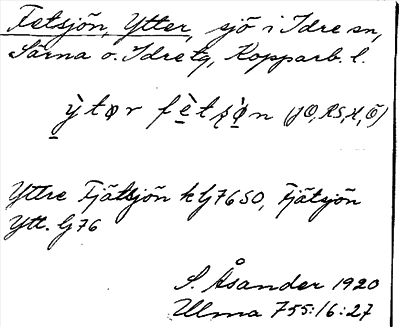 Fetsjön, Ytter, sjö i Idre sn,
Särna o. Idre tg, Kopparb. l.
ỳtər fètʂøn (JÖ, RS, H, Ö)
Yttre Fjätsjön k GJ7650, Fjätsjön
Ytt. GJ76
S. Åsander 1920
Ulma 755:16:27